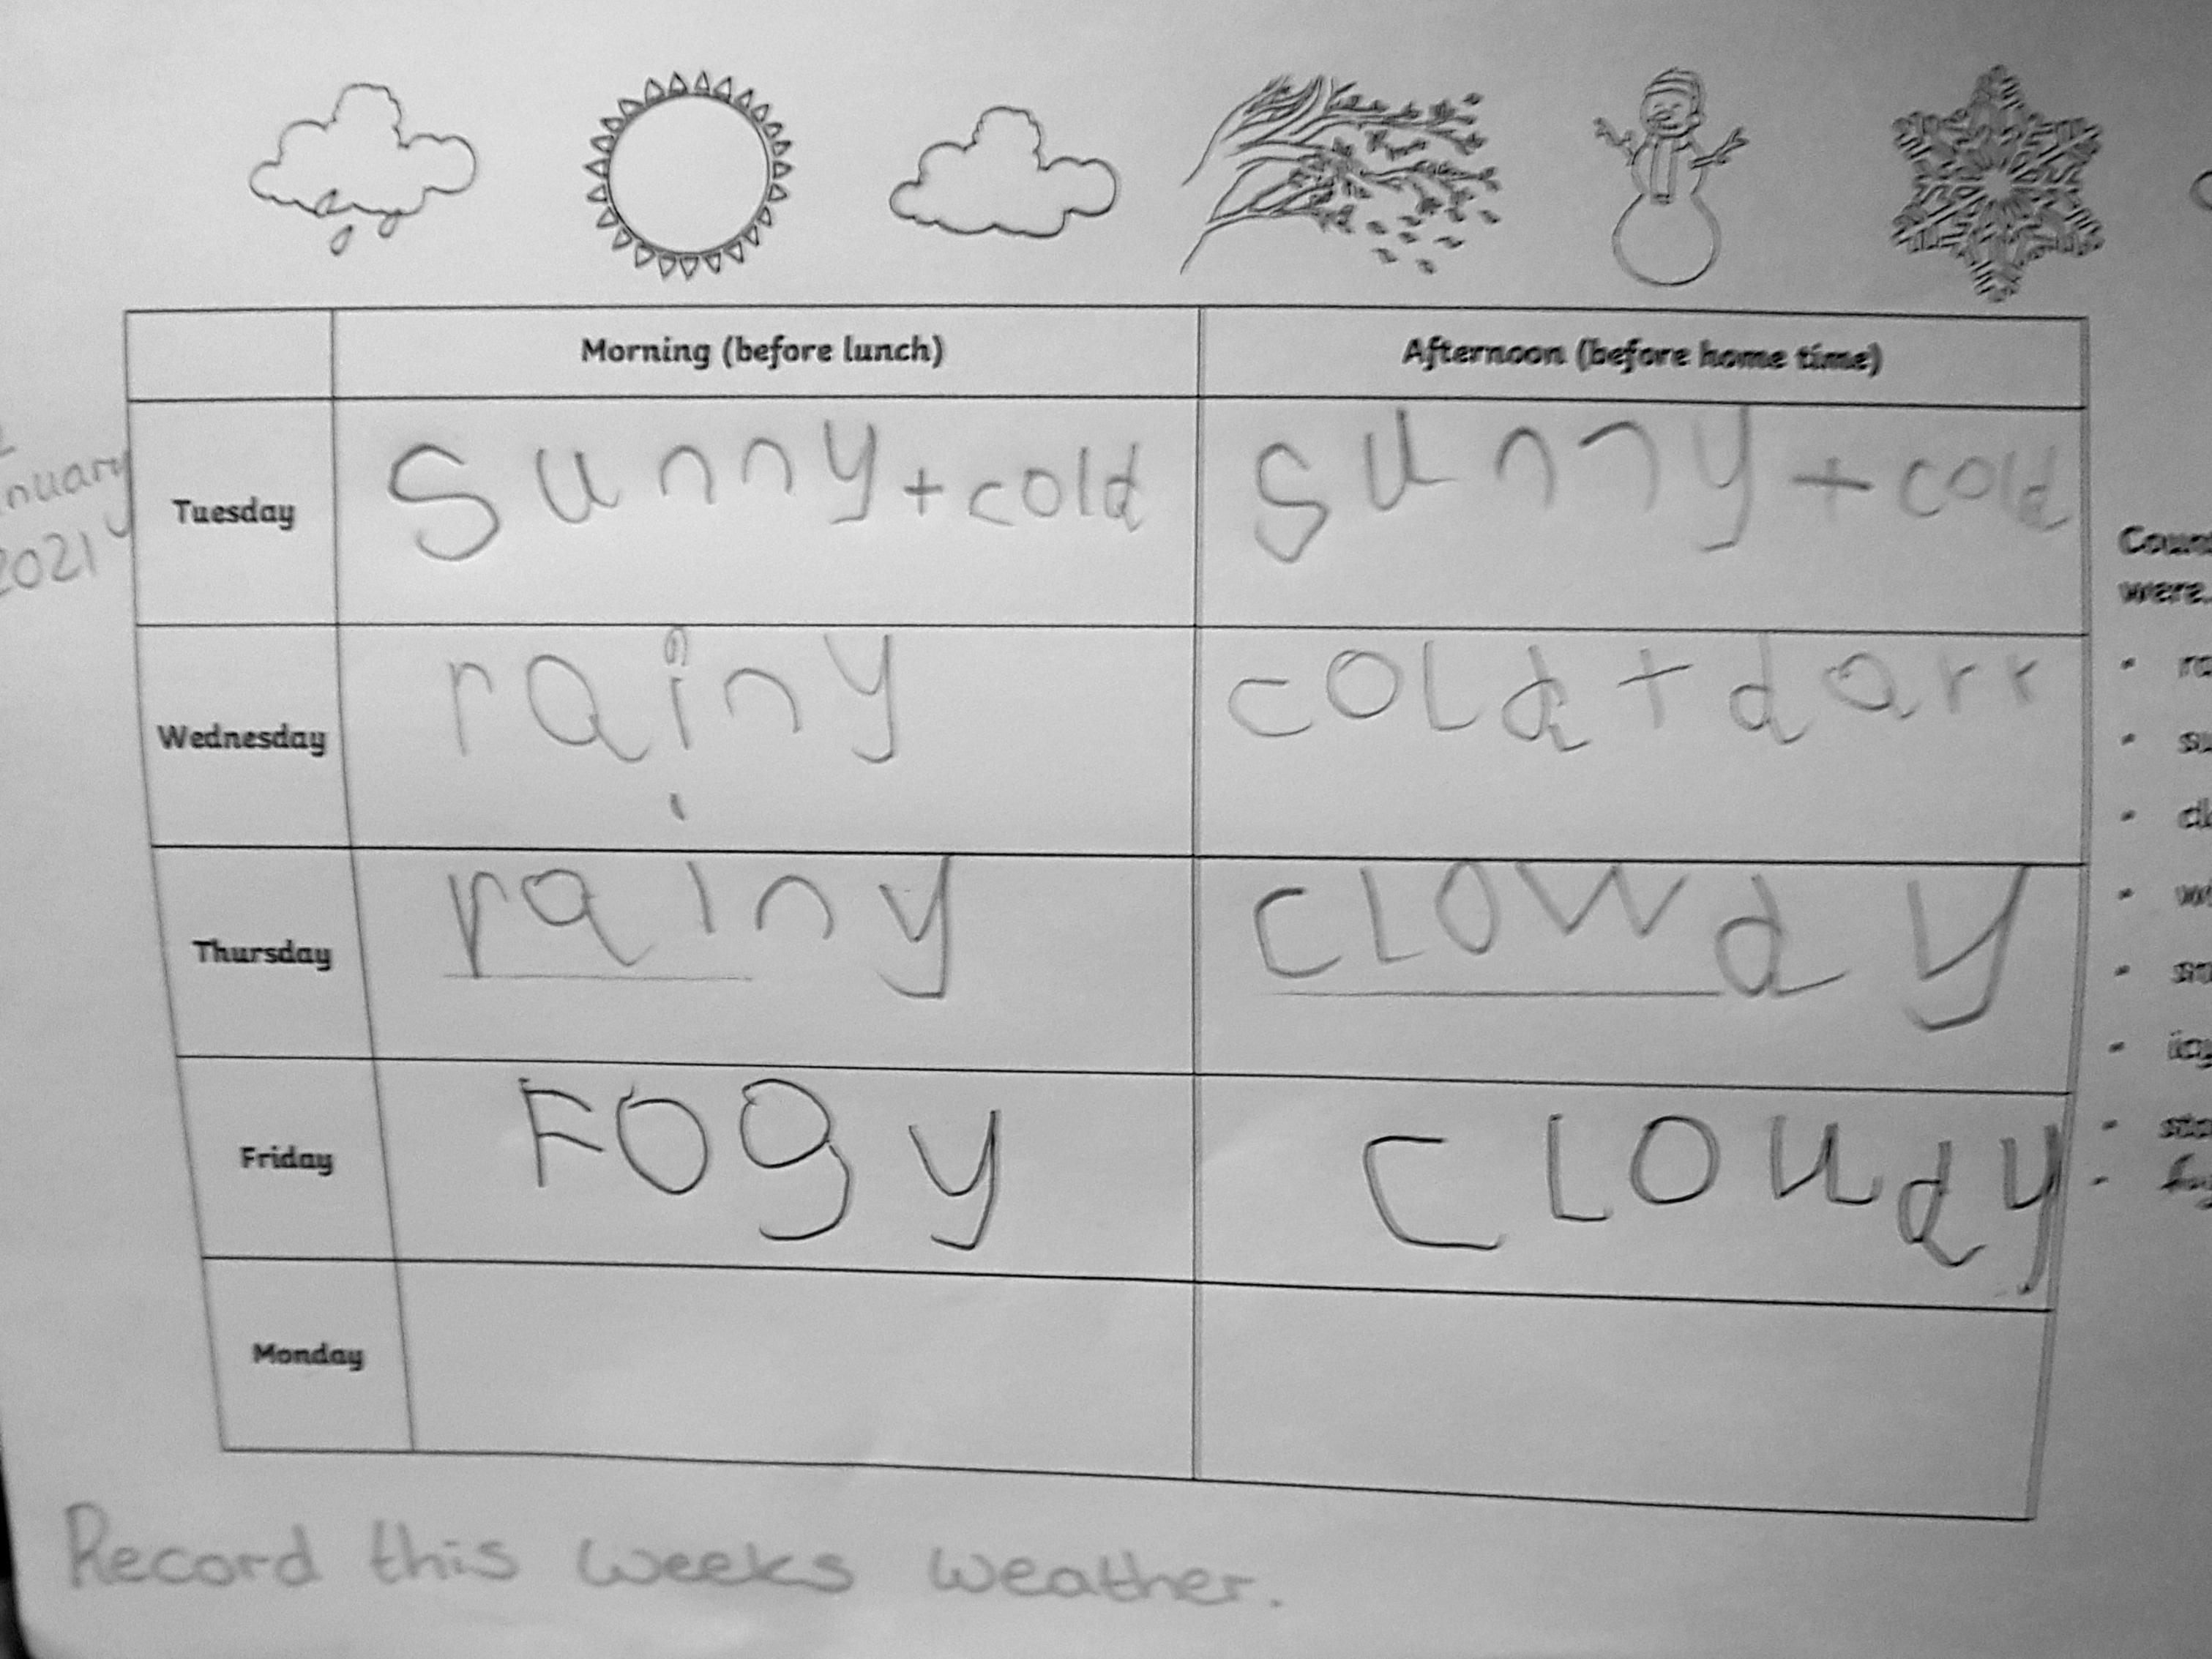 Morning (before lunch) Afternoon (before home time)
Tuesday sunny + cold sunny + cold
2021
Wednesday rainy cold + darr
Thursday rainy clowdy
Friday Fogy cloudy
Monday
were.
Record this weeks weather.